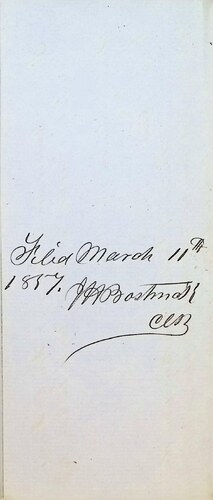 Filed March 11th
1857. JH Bostwick
Clk